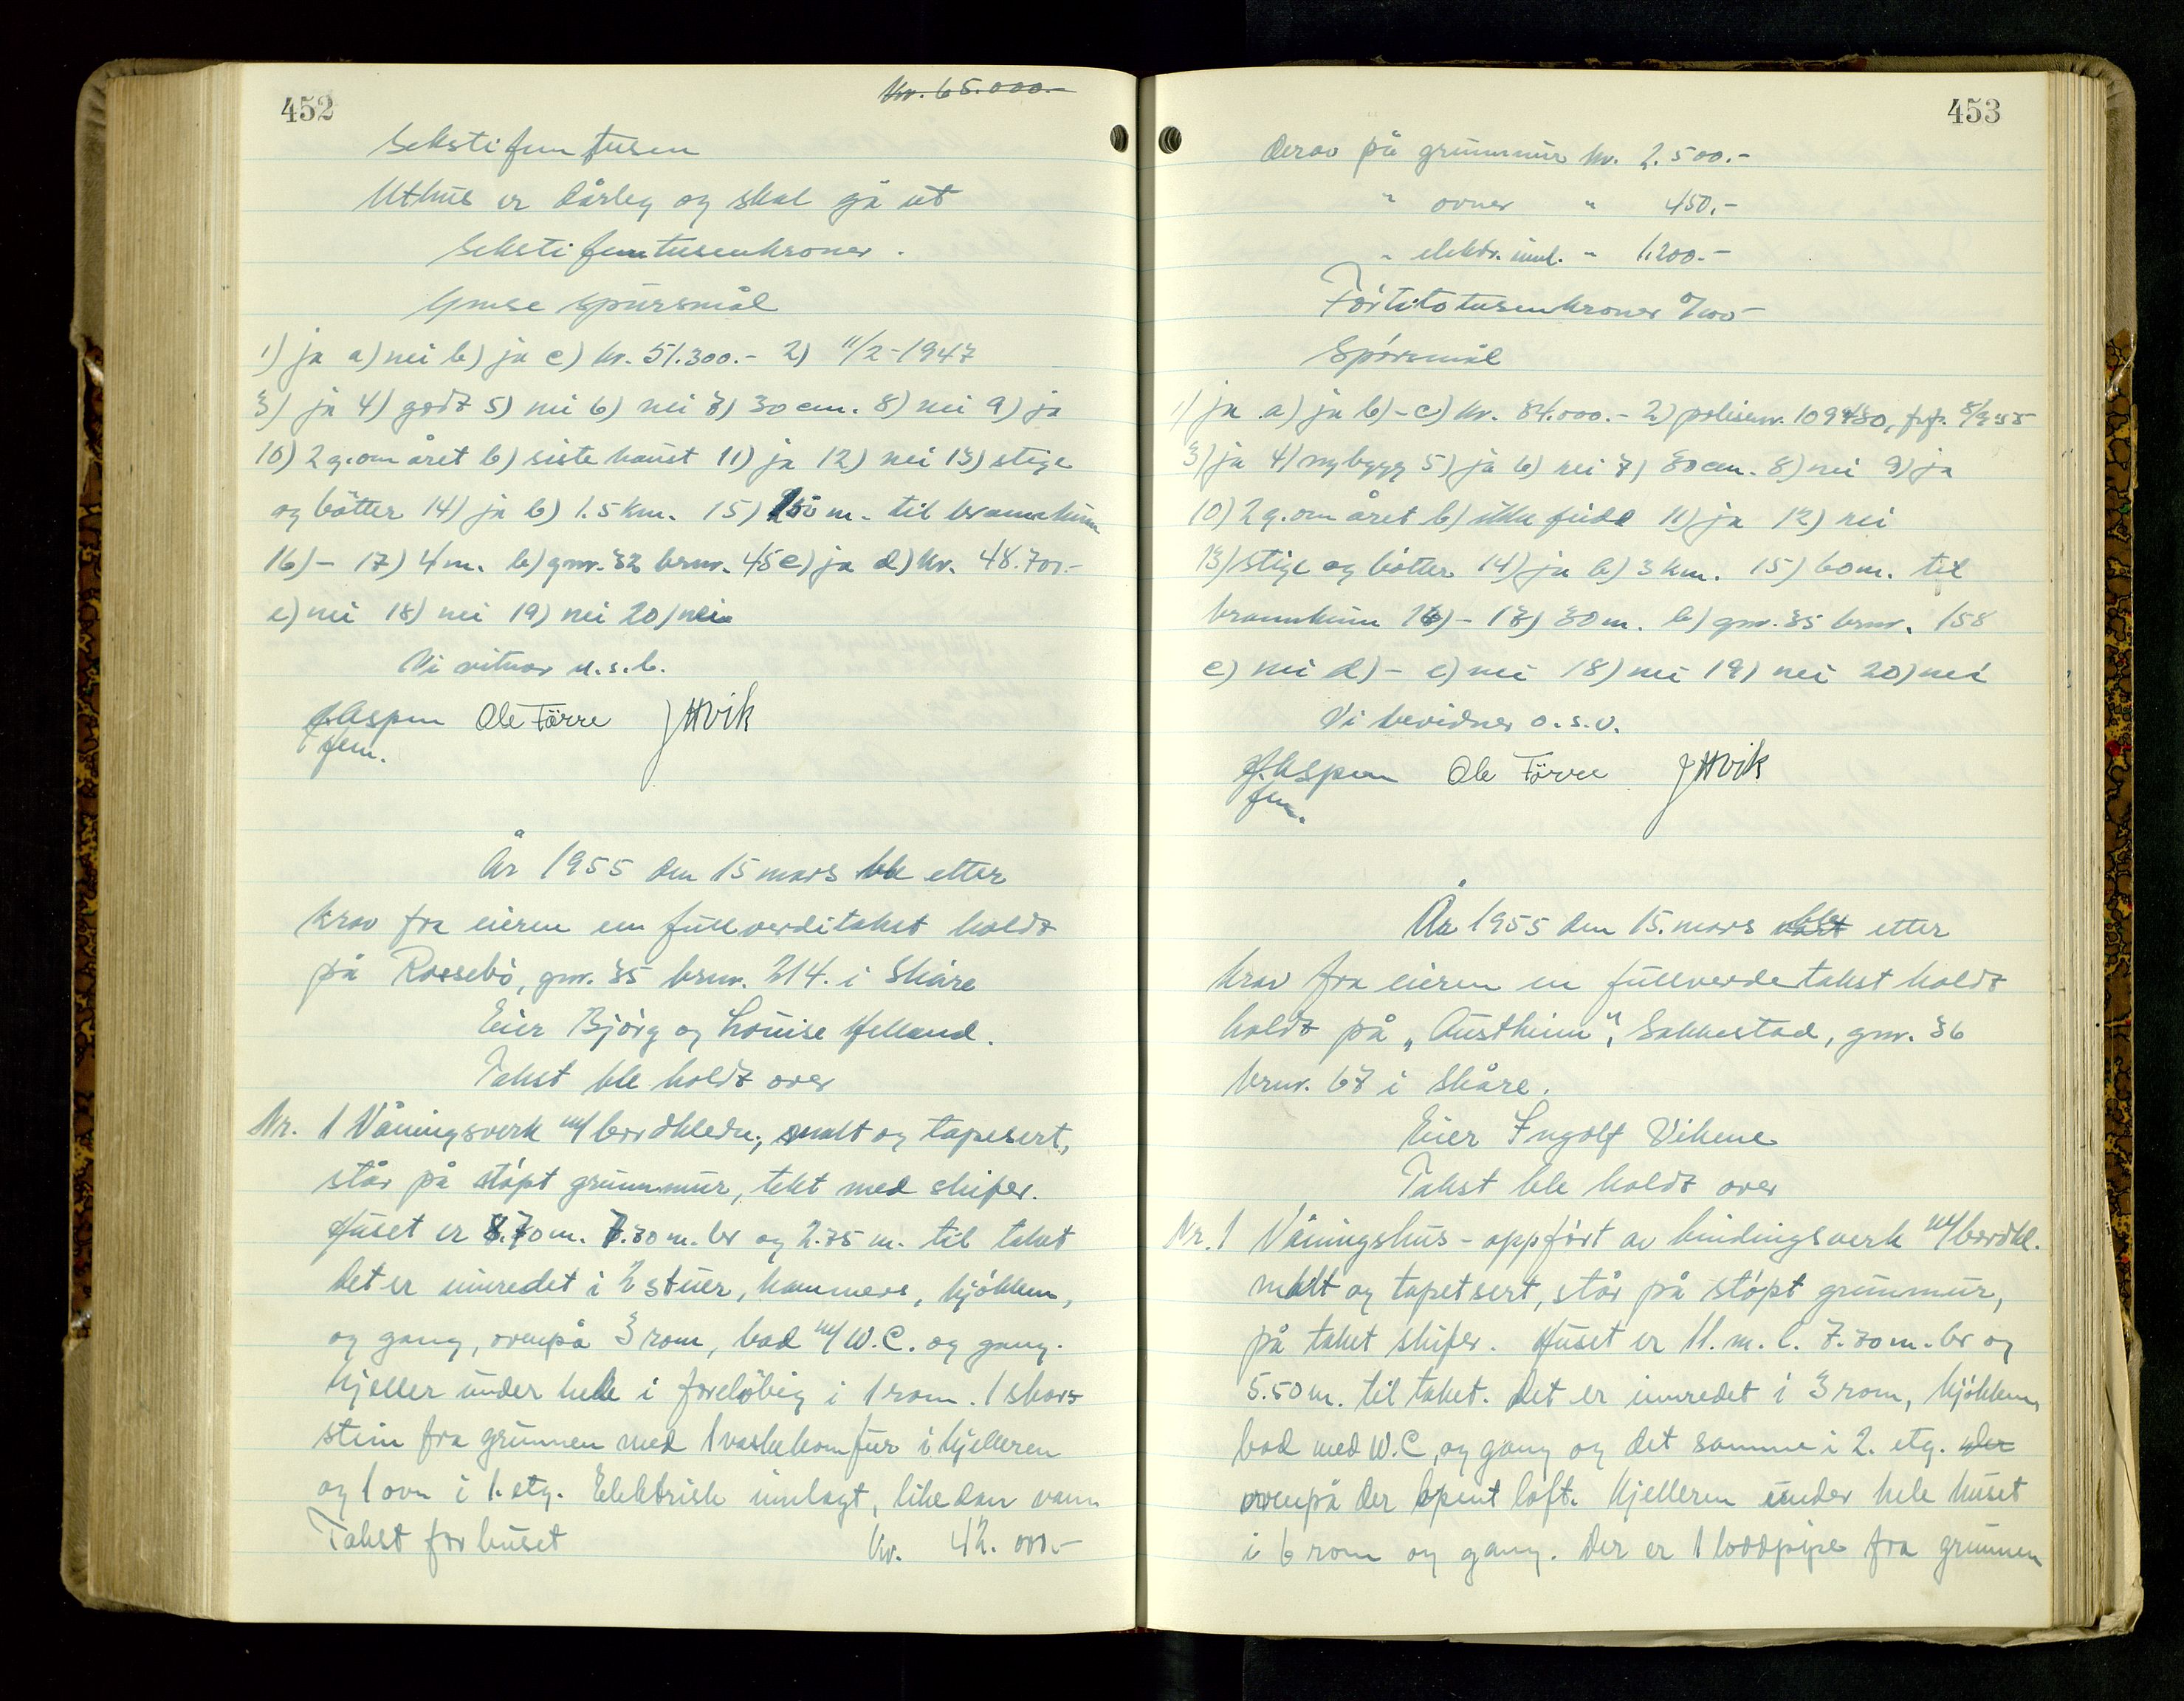 452
Kr. 65.000.-
Sekstifem tusen
Uthus er dårleg og skal gå ut
Sekstifemtusenkroner.
Ymse spursmål
1) ja a) nei b) ja c) kr. 51.300.- 2) 11/2-1947
3) ja 4) godt 5) nei 6) nei 7) 30 cm. 8) nei 9) ja
10) 2 g. om året b) siste haust 11) ja 12) nei 13) stige
og bötter 14) ja b) 1.5 km. 15) 250 m. til brannkum
16) - 17) 4 m. b) gnr. 32 brnr. 45 c) ja d) kr. 48.700.-
e) nei 18) nei 19) nei 20) nei
Vi vitnar u.s.b.
J. Aspen Ole Förre J H Vik
fem.
År 1955 den 15 mars ble etter
krav fra eieren en fullverditakst holdt
på Rossebö, gnr. 35 brnr. 214. i Skåre
Eier Björg og Louise Helland.
Takst ble holdt over
Nr. 1 Våningsverk m/ bordkledn., malt og tapesert,
står på stöpt grunnmur, tekt med skifer.
Huset er 8.70 m. 7.30 m. br og 2.75 m. til taket
Det er innredet i 2 stuer, kammers, kjökken,
og gang, ovenpå 3 rom, bad m/ W.C. og gang.
Kjeller under hele i foreløbig i 1 rom. 1 skors
stein fra grunnen med 1 vaskekomfur i kjelleren
og 1 ovn i 1. etg. Elektrisk innlagt, likedan vann
Takst for huset Kr. 42.000.-
453
Derav på grunnmur kr. 2.500.-
" ovner " 450.-
" elektr. innl. " 1.200.-
Förtitotusenkroner 0/100
Spörsmål
1) ja a) ja b) - c) kr. 84.000.- 2) polisenr. 109480, frf. 8/9 55
3) ja 4) nybygg 5) ja 6) nei 7) 80 cm. 8) nei 9) ja
10) 2 g. om året b) ikke feidd 11) ja 12) nei
13) stige og bötter 14) ja b) 3 km. 15) 60 m. til
brannkum 16) - 17) 30 m. b) gnr. 35 brnr. 158
c) nei d) - e) nei 18) nei 19) nei 20) nei
Vi bevidner o.s.v.
J. Aspen Ole Förre J H Vik
fem.
År 1955 den 15. mars ble etter
krav fra eieren en fullverdetakst holdt
holdt på "Austheim", Sakkestad, gnr. 36
brnr. 67 i Skåre.
Eier Ingolf Vikene
Takst ble holdt over
Nr. 1 Våningshus - oppfört av bindingsverk m/ bordkl.
malt og tapetsert, står på stöpt grunnmur,
på taket skifer. Huset er 11. m. l. 7.70 m. br og
5.50 m. til taket. Det er innredet i 3 rom, kjökken,
bad med W.C, og gang og det samme i 2. etg. der
ovenpå der åpent loft. Kjelleren under hele huset
i 6 rom og gang. Der er 1 loddpipe fra grunnen